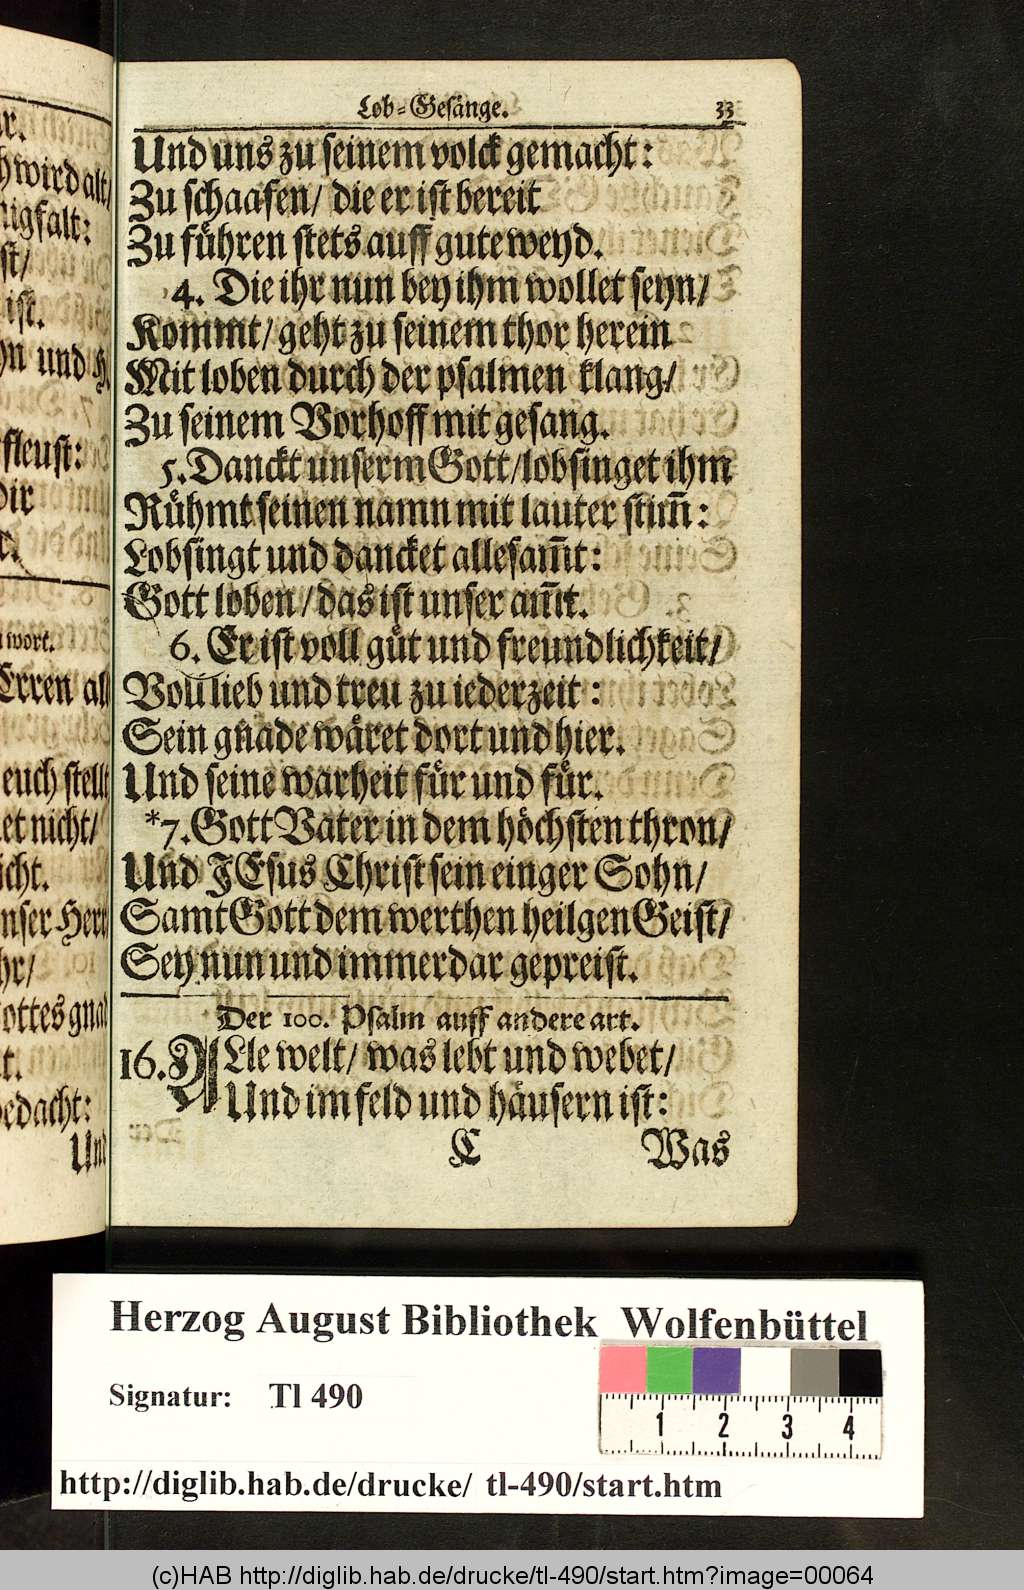 Lob-Gesänge. 33
Und uns zu seinem volck gemacht:
Zu schaafen/ die er ist bereit
Zu führen stets auff gute weyd.
4. Die ihr nun bey ihm wollet seyn/
Kommt/ geht zu seinem thor herein
Mit loben durch der psalmen klang/
Zu seinem Vorhoff mit gesang.
5. Danckt unserm Gott/ lobsinget ihm
Rühmt seinen namn mit lauter stim̃:
Lobsingt und dancket allesam̃t:
Gott loben/ das ist unser am̃t.
6. Er ist voll güt und freundlichkeit/
Voll lieb und treu zu iederzeit:
Sein gnade wäret dort und hier.
Und seine warheit für und für.
*7. Gott Vater in dem höchsten thron/
Und JEsus Christ sein einger Sohn/
Samt Gott dem werthen heilgen Geist/
Sey nun und immerdar gepreist.
Der 100. Psalm auff andere art.
16. ALle welt/ was lebt und webet/
Und im feld und häusern ist:
C Was
wird alt/
fleust:
dir
wort.
ERren
euch stellt
nicht/
unser Herr
Gottes
bedacht:
Und
Herzog August Bibliothek Wolfenbüttel
Signatur: Tl 490
1 2 3 4
http://diglib.hab.de/drucke/ tl-490/start.htm
(c)HAB http://diglib.hab.de/drucke/tl-490/start.htm?image=00064